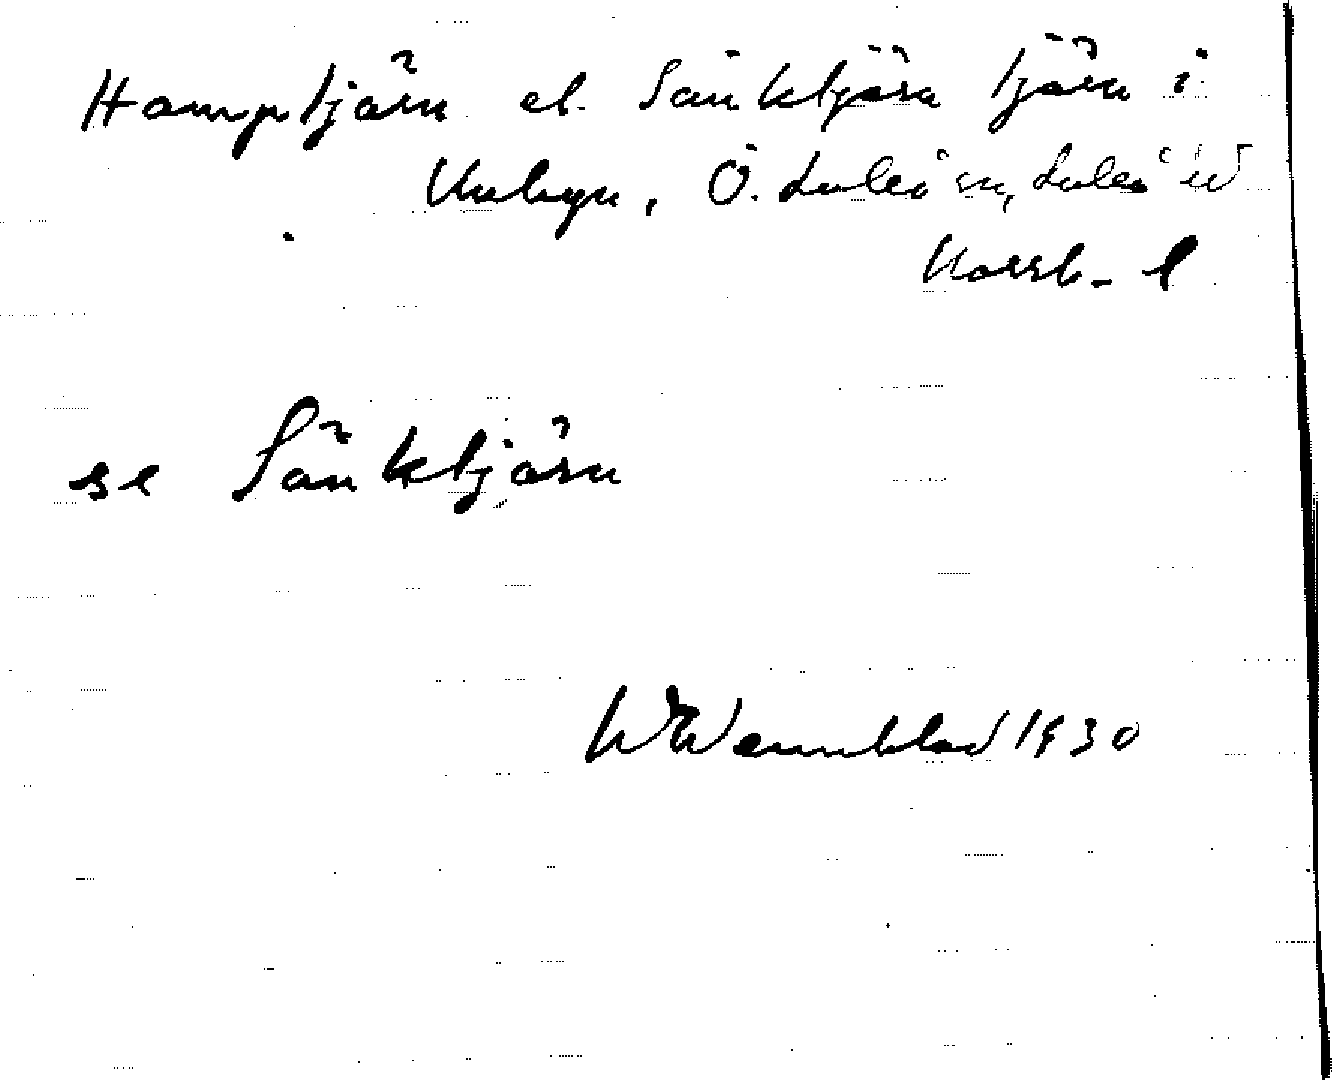 Hamptjärn el. Sänktjärn tjärn i
Unbyn, Ö. Luleå sn, Luleå
Norrb. l
se Sänktjärn
W Wennblad 1930